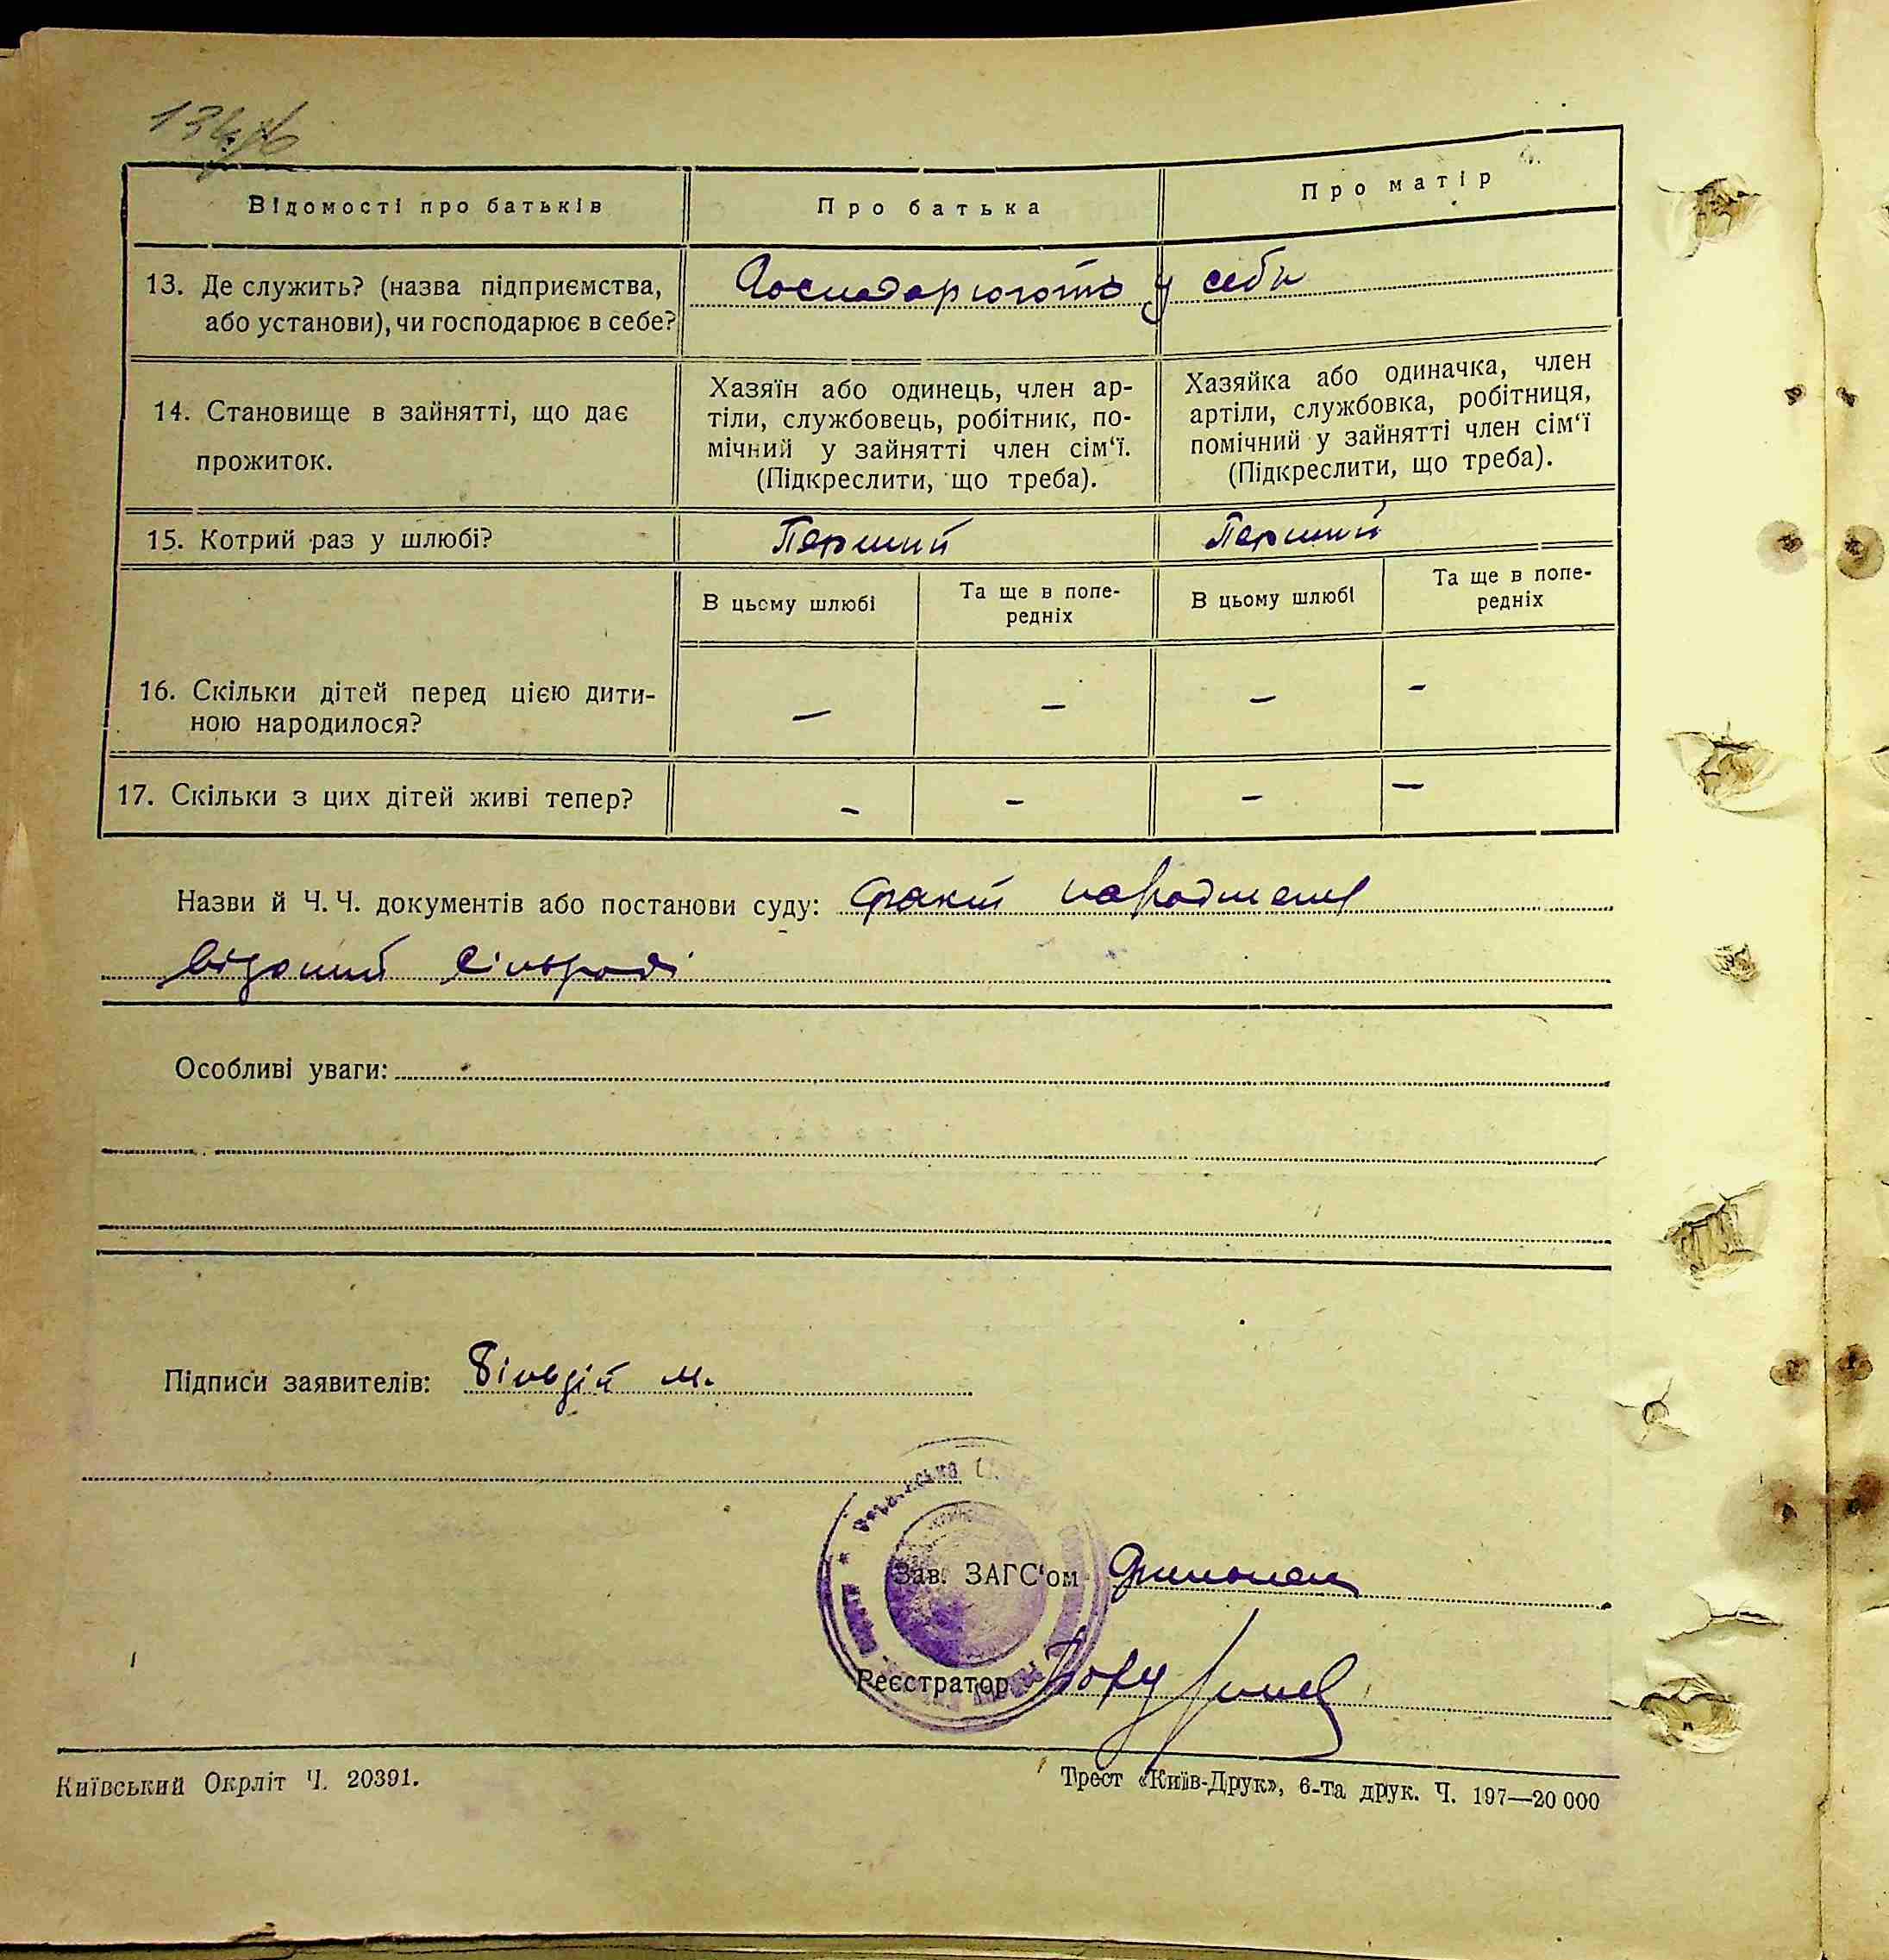 Відомості про батьків
Про батька
Про матір
13. Де служить? (назва підприємства,
або установи), чи господарює в себе?
Господарюють у себе
14. Становище в зайнятті, що дає
прожиток.
Хазяїн або одинець, член ар-
тіли, службовець, робітник, по-
мічний у зайнятті член сім‘ї.
(Підкреслити, що треба).
Хазяйка або одиначка, член
артіли, службовка, робітниця,
помічний у зайнятті член сім‘ї
(Підкреслити, що треба).
15. Котрий раз у шлюбі?
Перший
Перший
В цьому шлюбі
Та ще в попе-
редніх
В цьому шлюбі
Та ще в попе-
редніх
16. Скільки дітей перед цією дити-
ною народилося?
— — — —
17. Скільки з цих дітей живі тепер?
— — — —
Назви й Ч. Ч. документів або постанови суду: факт народження
відомий сільраді
Особливі уваги:
Підписи заявителів: Більдій М.
Зав. ЗАГС‘ом
Реєстратор
Київський Окрліт Ч. 20391.
Трест «Київ-Друк», 6-та друк. Ч. 197—20 000